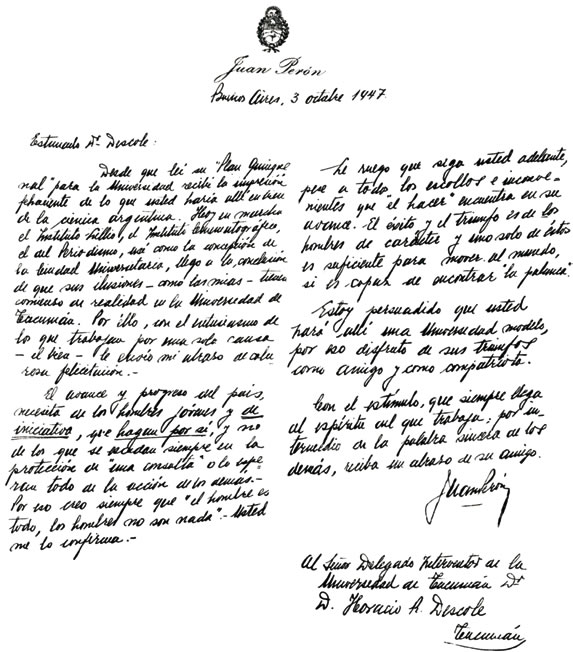 Juan Perón
Buenos Aires, 3 octubre 1947.
Estimado Dr. Descole:
Desde que leí su "Plan Quinque
nal" para la Universidad recibí la impresión
de lo que usted haría allí en bien
de la ciencia argentina. Hoy, en marcha
el Instituto Lillo, el Instituto Cinematográfico,
el del Periodismo, así como la concepción de
la Ciudad Universitaria, llego a la conclusión
de que sus ilusiones - como las mías - tienen
comienzo de realidad en la Universidad de
Tucumán. Por ello, con el entusiasmo de
lo que trabajan por una sola causa
- el bien - le envío mi abrazo de calu
rosa felicitación. -
El avance y progreso del país,
necesita de los hombres jóvenes y de
iniciativa, que hagan por sí, y no
de los que se escudan siempre en la
protección de "una consulta" o lo espe-
ran todo de la acción de los demás. -
Por eso creo siempre que "el hombre es
todo, los hombres no son nada". - Usted
me lo confirma. -
Le ruego que siga usted adelante,
pese a todos los escollos e inconve-
nientes que "el hacer" encuentra en su
avance. El éxito y el triunfo es de los
hombres de carácter y uno solo de éstos
es suficiente para mover al mundo,
si es capaz de encontrar la palanca".
Estoy persuadido que usted
hará allí una Universidad modelo,
por eso disfruto de sus triunfos
como amigo y como compatriota.
Con el estímulo, que siempre llega
al espíritu del que trabaja; por in
termedio de la palabra sincera de los
demás, reciba un abrazo de su amigo.
Juan Perón
Al Señor Delegado Interventor de la
Universidad de Tucumán Dr
D. Horacio R. Descole
Tucumán